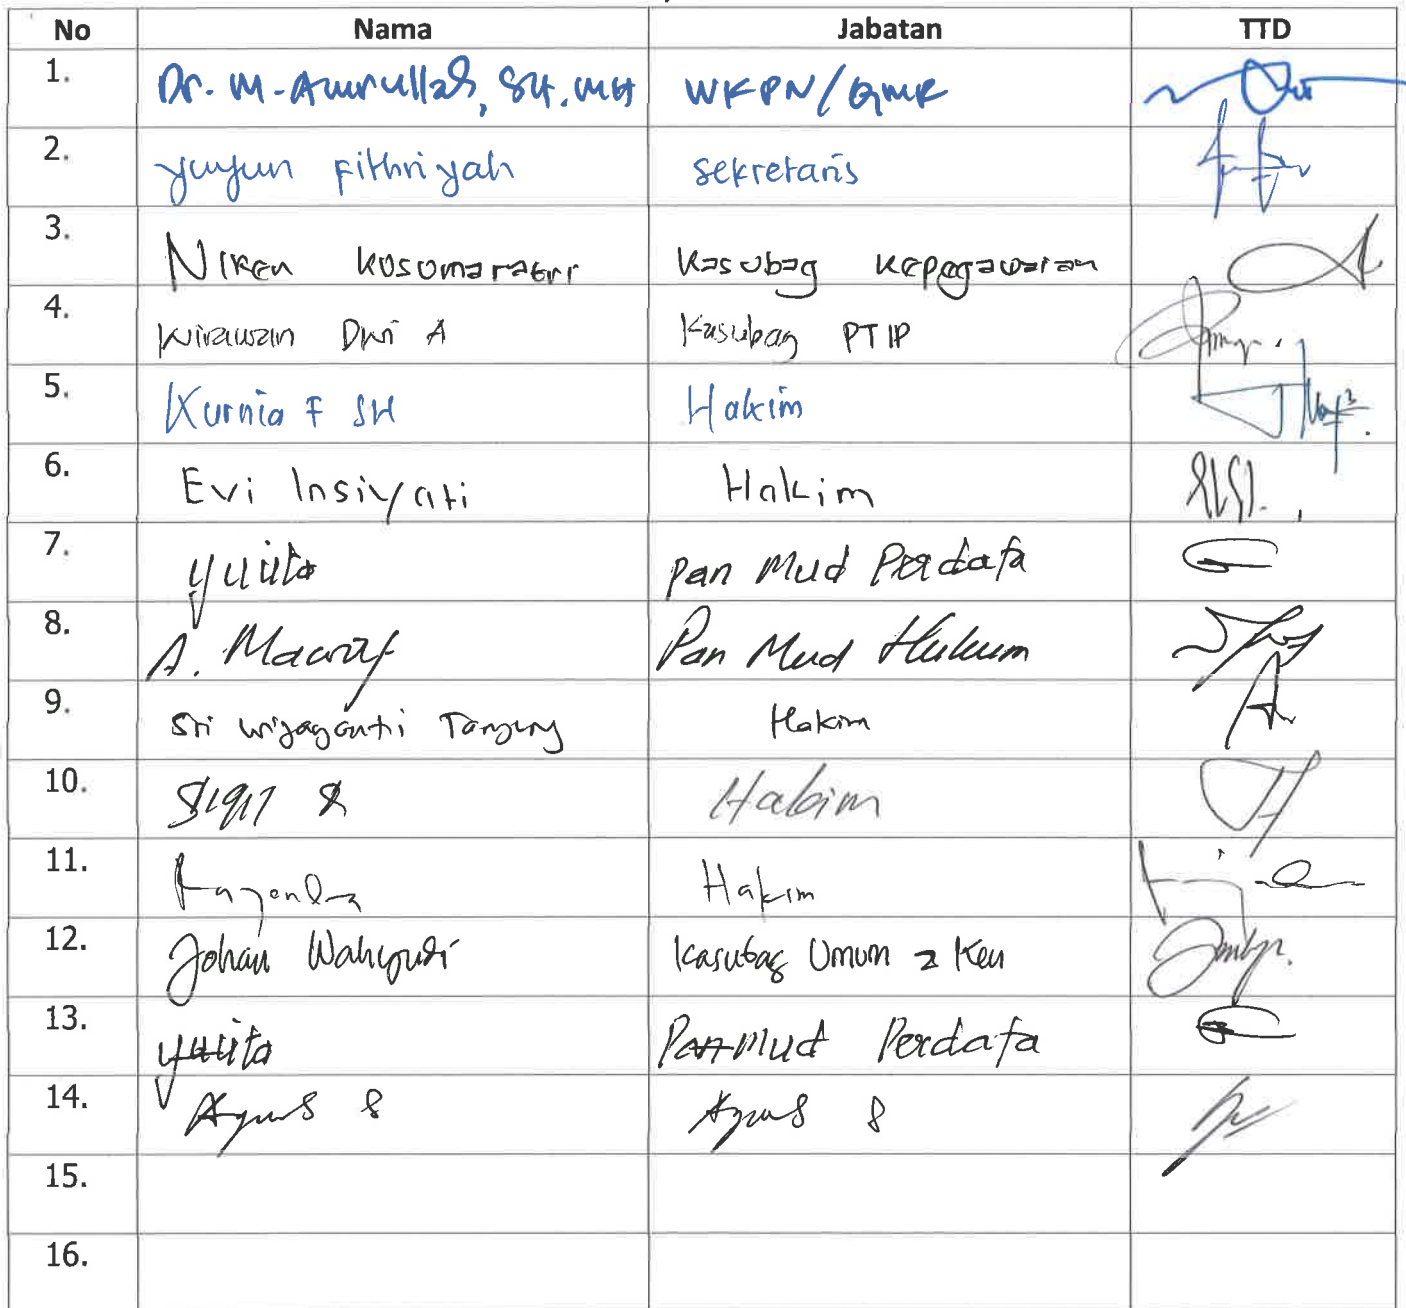 No Nama Jabatan TTD
1. Dr. M. Amrullah, SH. MH WKPN/QMR
2. yuyun Fithriyah sekretaris
3. Niken Kusumarastri Kasubag Kepegawaian
4. Wirawan Dwi A Kasubag PTIP
5. Kurnia F SH Hakim
6. Evi Insiyati Hakim
7. yulita Pan Mud Perdata
8. A. Ma'ruf Pan Mud Hukum
9. Sri wijayanti Tanjung Hakim
10. Sigit Hakim
11. Hakim
12. Johan Wahyudi Kasubag Umum & Keu
13. yulita Pan Mud Perdata
14. Agus S Agus S
15.
16.